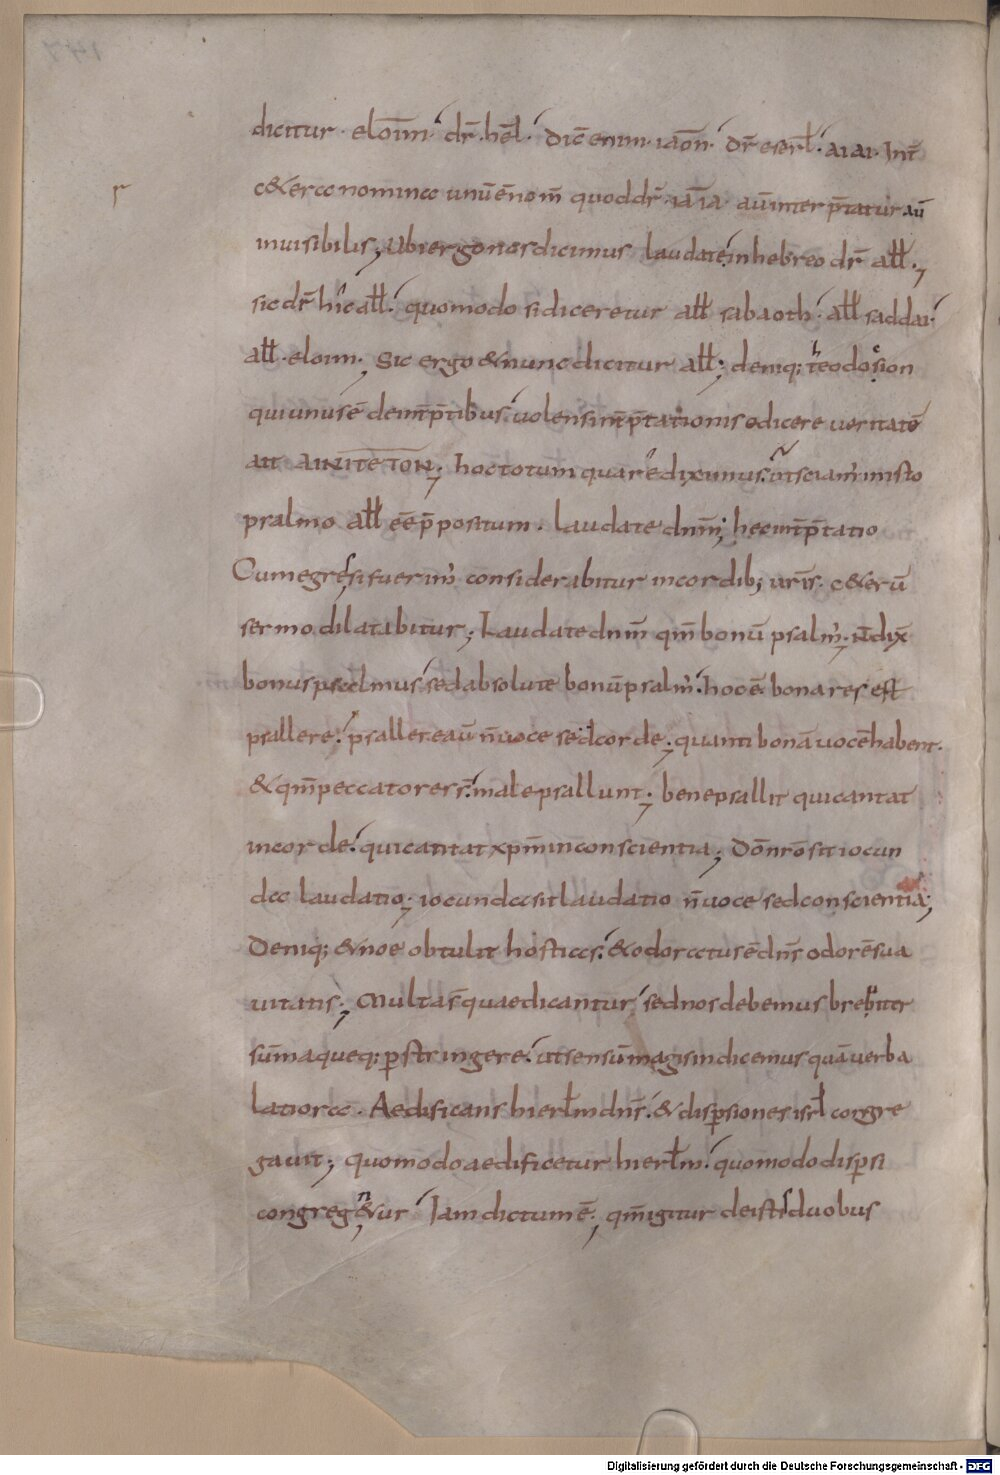 dicitur · eloim · dr̄ · hēl · Dic̄ enim · iaōn · Dr̄ eserl̄ · ai ai · Int̄
c&era nomina unū ē nom̄ quod dr̄ · iaīa · aū inter p̄tatur aū
inuisibilis; Ubi ergo nos dicimus laudate in hebreo dr̄ all̄ ·
sic dr̄ hic all̄ · quomodo si diceretur all̄ sabaoth · all̄ saddai ·
all̄ · eloim; Sic ergo & nunc dicitur all̄; deniq; theodosion
qui unus ē de int̄p̄tibus uolens int̄p̄tationis dicere ueritatē
ait AINITE TON; hoc totum quare diximus · ut sciam̄ in isto
psalmo all̄ eē p̄positum · laudate dn̄m; hec int̄p̄tatio
Cum egressi fuerim̄ considerabitur in cordib; uris · c&erū
sermo dilatabitur; Laudate dn̄m qm̄ bonū psalm̄; N̄ dix̄
bonus psalmus sed absolute bonū psalm̄ · hoc ē bona res est
psallere · psallere aū n̄ uoce sed corde; quanti bonā uocē habent ·
& qm̄ peccatores s̄ male psallunt; bene psallit qui cantat
in corde · qui cantat xpm̄ in conscientia; Dō nrō sit iocun
da laudatio; iocunda sit laudatio n̄ uoce sed conscientia;
Deniq; & noe obtulit hostias · & odoratus ē dn̄s odorē sua
uitatis; Multa s̄ quae dicantur sed nos debemus breuiter
sūmaqueq; pstringere · ut sensū magis indicemus quā uerba
latiora · Aedificans hierl̄m dn̄s · & dispsiones isrl̄ congre
gauit; quomodo aedificetur hierl̄m · quomodo dispsi
congreg&nur Iam dictum ē; qm̄ igitur de istis duobus
Digitalisierung gefördert durch die Deutsche Forschungsgemeinschaft - DFG